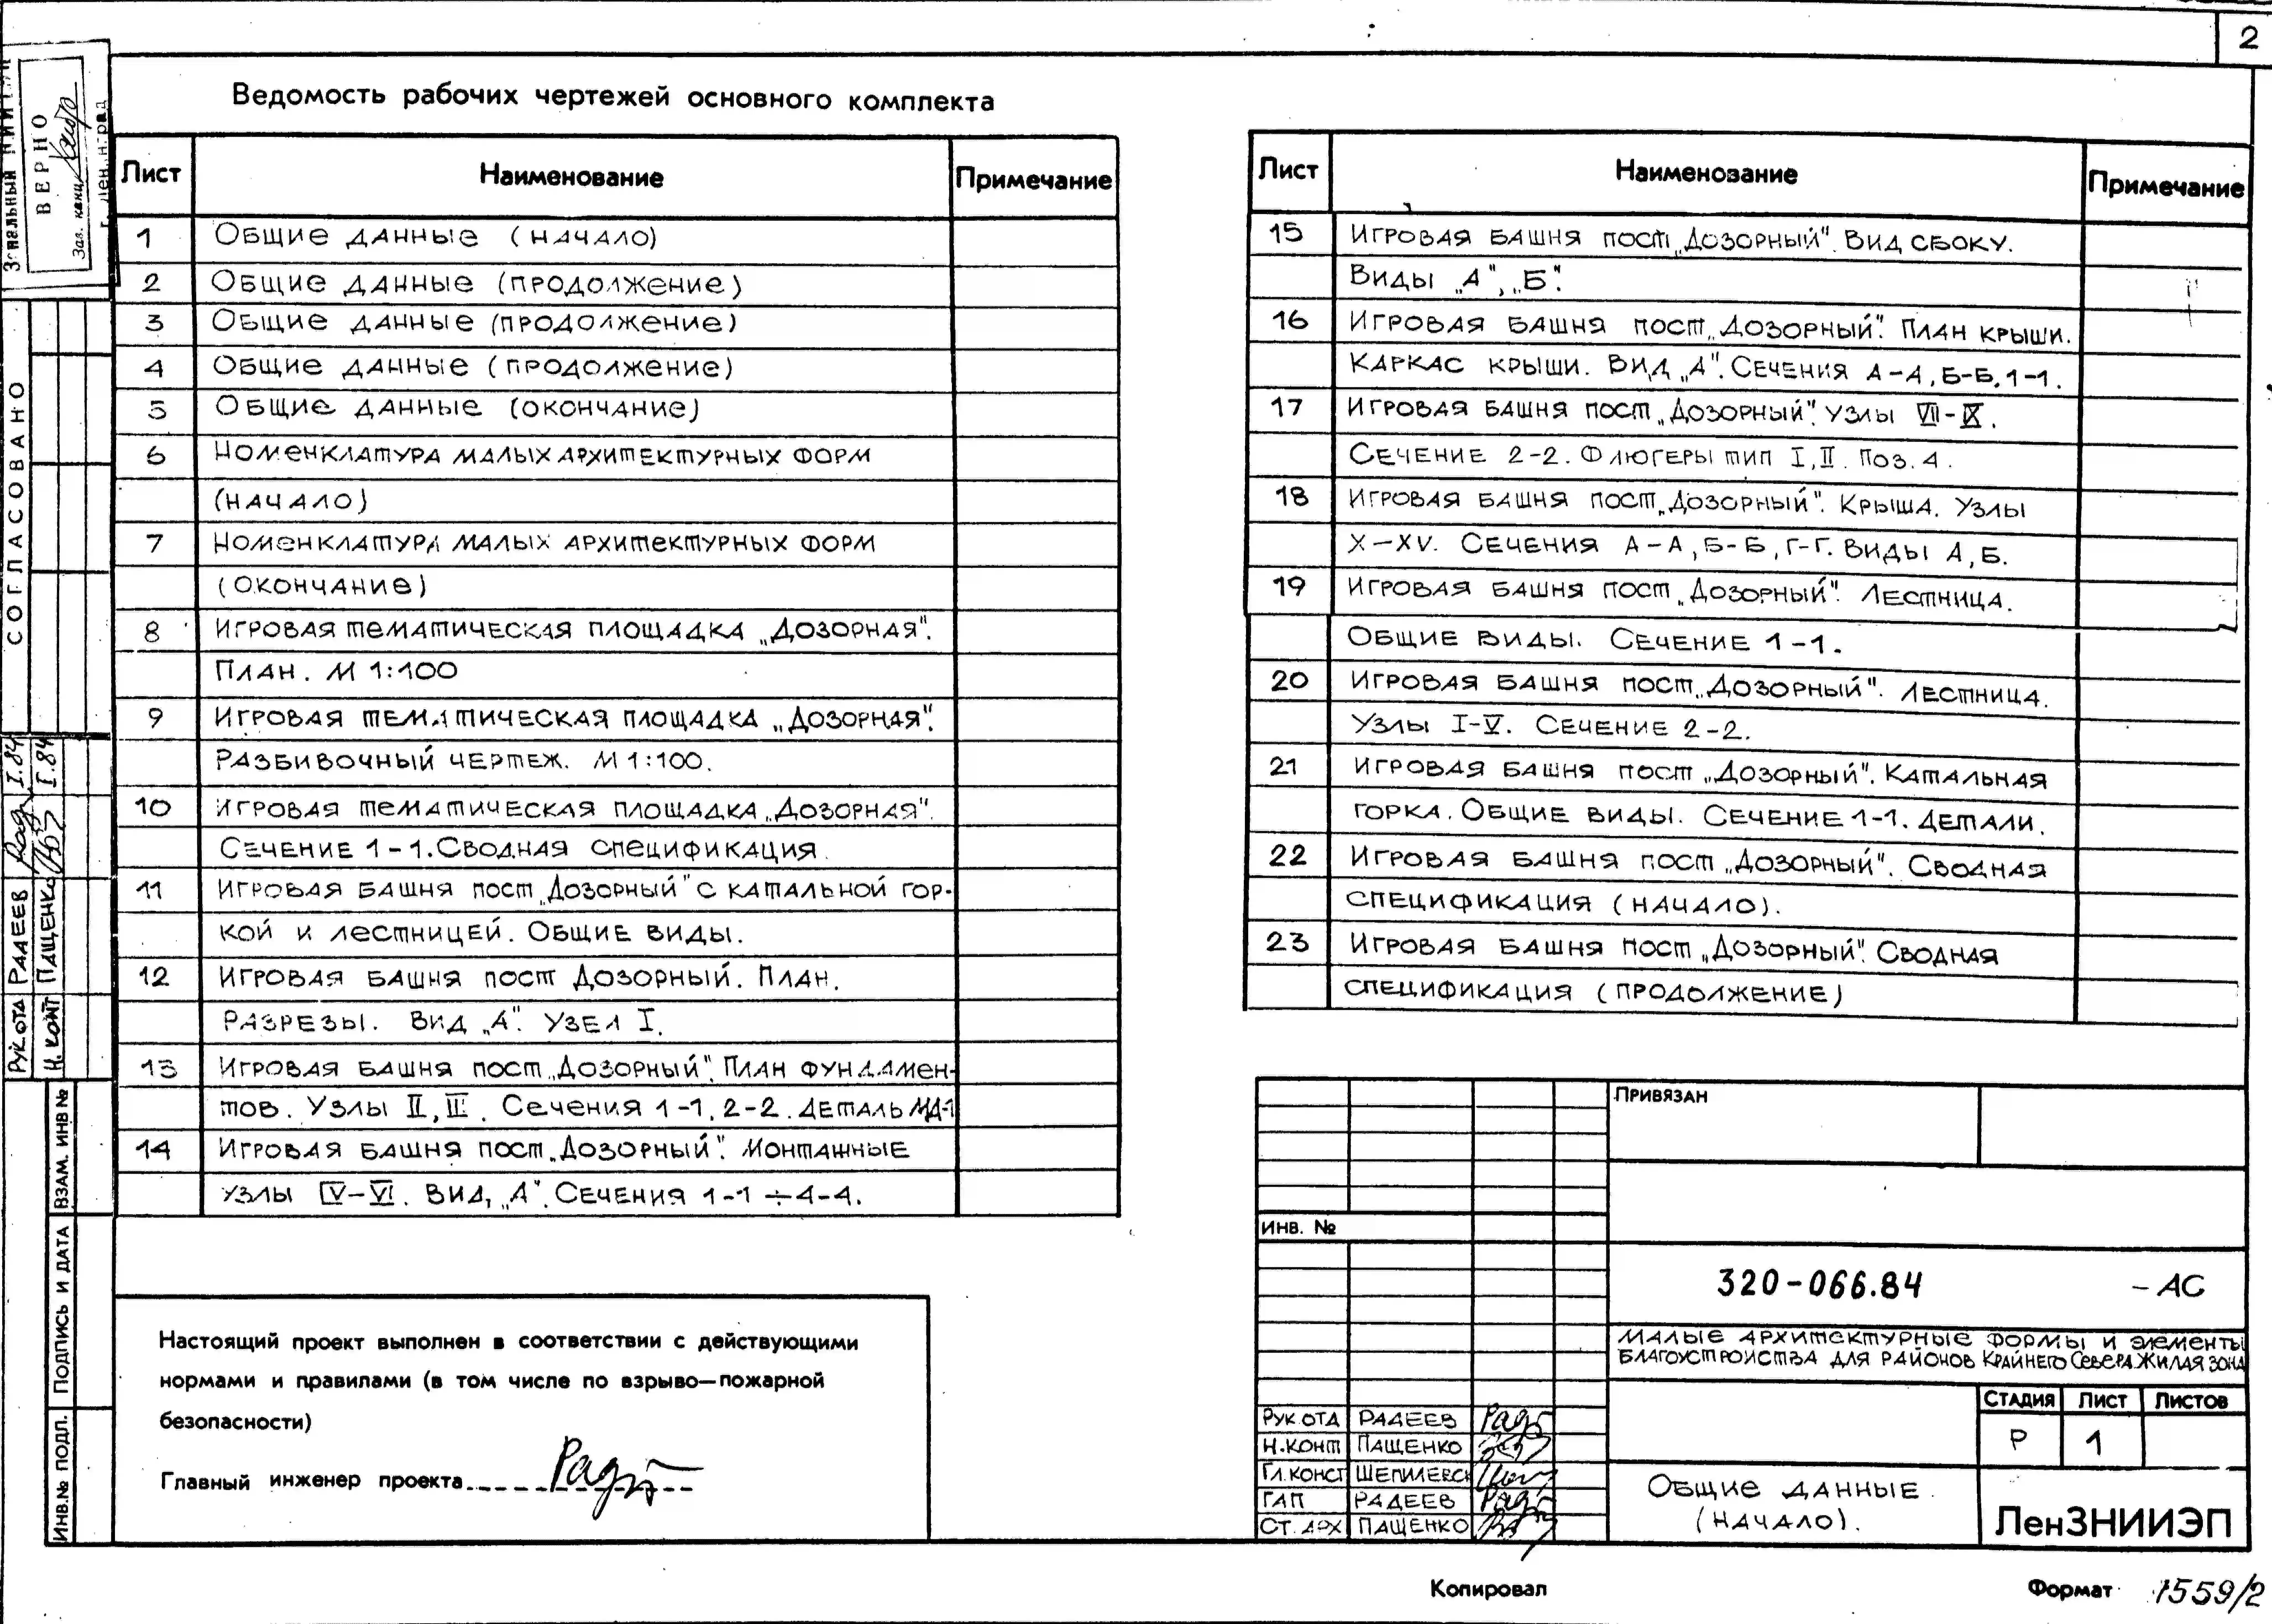 2
Ведомость рабочих чертежей основного комплекта
Лист Наименование Примечание
1 Общие данные (начало)
2 Общие данные (продолжение)
3 Общие данные (продолжение)
4 Общие данные (продолжение)
5 Общие данные (окончание)
6 Номенклатура малых архитектурных форм
(начало)
7 Номенклатура малых архитектурных форм
(окончание)
8 Игровая тематическая площадка „Дозорная".
План. М 1:100
9 Игровая тематическая площадка „Дозорная".
Разбивочный чертеж. М 1:100.
10 Игровая тематическая площадка „Дозорная".
Сечение 1-1. Сводная спецификация.
11 Игровая башня пост „Дозорный" с катальной гор-
кой и лестницей. Общие виды.
12 Игровая башня пост Дозорный. План.
Разрезы. Вид „А". Узел I.
13 Игровая башня пост „Дозорный". План фундамен-
тов. Узлы II, III. Сечения 1-1, 2-2. Деталь МД-1
14 Игровая башня пост „Дозорный". Монтажные
узлы IV-VI. Вид „А". Сечения 1-1 ÷ 4-4.
Лист Наименование Примечание
15 Игровая башня пост „Дозорный". Вид сбоку.
Виды „А", „Б".
16 Игровая башня пост „Дозорный". План крыши.
Каркас крыши. Вид „А". Сечения А-А, Б-Б, 1-1.
17 Игровая башня пост „Дозорный". Узлы VII-IX.
Сечение 2-2. Флюгеры тип I, II. Поз. 4.
18 Игровая башня пост „Дозорный". Крыша. Узлы
X-XV. Сечения А-А, Б-Б, Г-Г. Виды А, Б.
19 Игровая башня пост „Дозорный". Лестница.
Общие виды. Сечение 1-1.
20 Игровая башня пост „Дозорный". Лестница.
Узлы I-V. Сечение 2-2.
21 Игровая башня пост „Дозорный". Катальная
горка. Общие виды. Сечение 1-1. Детали.
22 Игровая башня пост „Дозорный". Сводная
спецификация (начало).
23 Игровая башня пост „Дозорный". Сводная
спецификация (продолжение)
Настоящий проект выполнен в соответствии с действующими
нормами и правилами (в том числе по взрыво—пожарной
безопасности)
Главный инженер проекта
Привязан
Инв. №
320-066.84 -АС
Малые архитектурные формы и элементы
благоустройства для районов Крайнего Севера. Жилая зона
Стадия Лист Листов
Р 1
Рук. отд Радеев
Н.конт Пащенко
Гл.конст Шепилевск
ГАП Радеев
Ст. арх Пащенко
Общие данные
(начало).
ЛенЗНИИЭП
Копировал
Формат 1559/2
ВЕРНО
Зав. канц.
СОГЛАСОВАНО
Рук.отд Радеев I.84
Н. конт Пащенко I.84
Взам. инв №
Подпись и дата
Инв.№ подл.